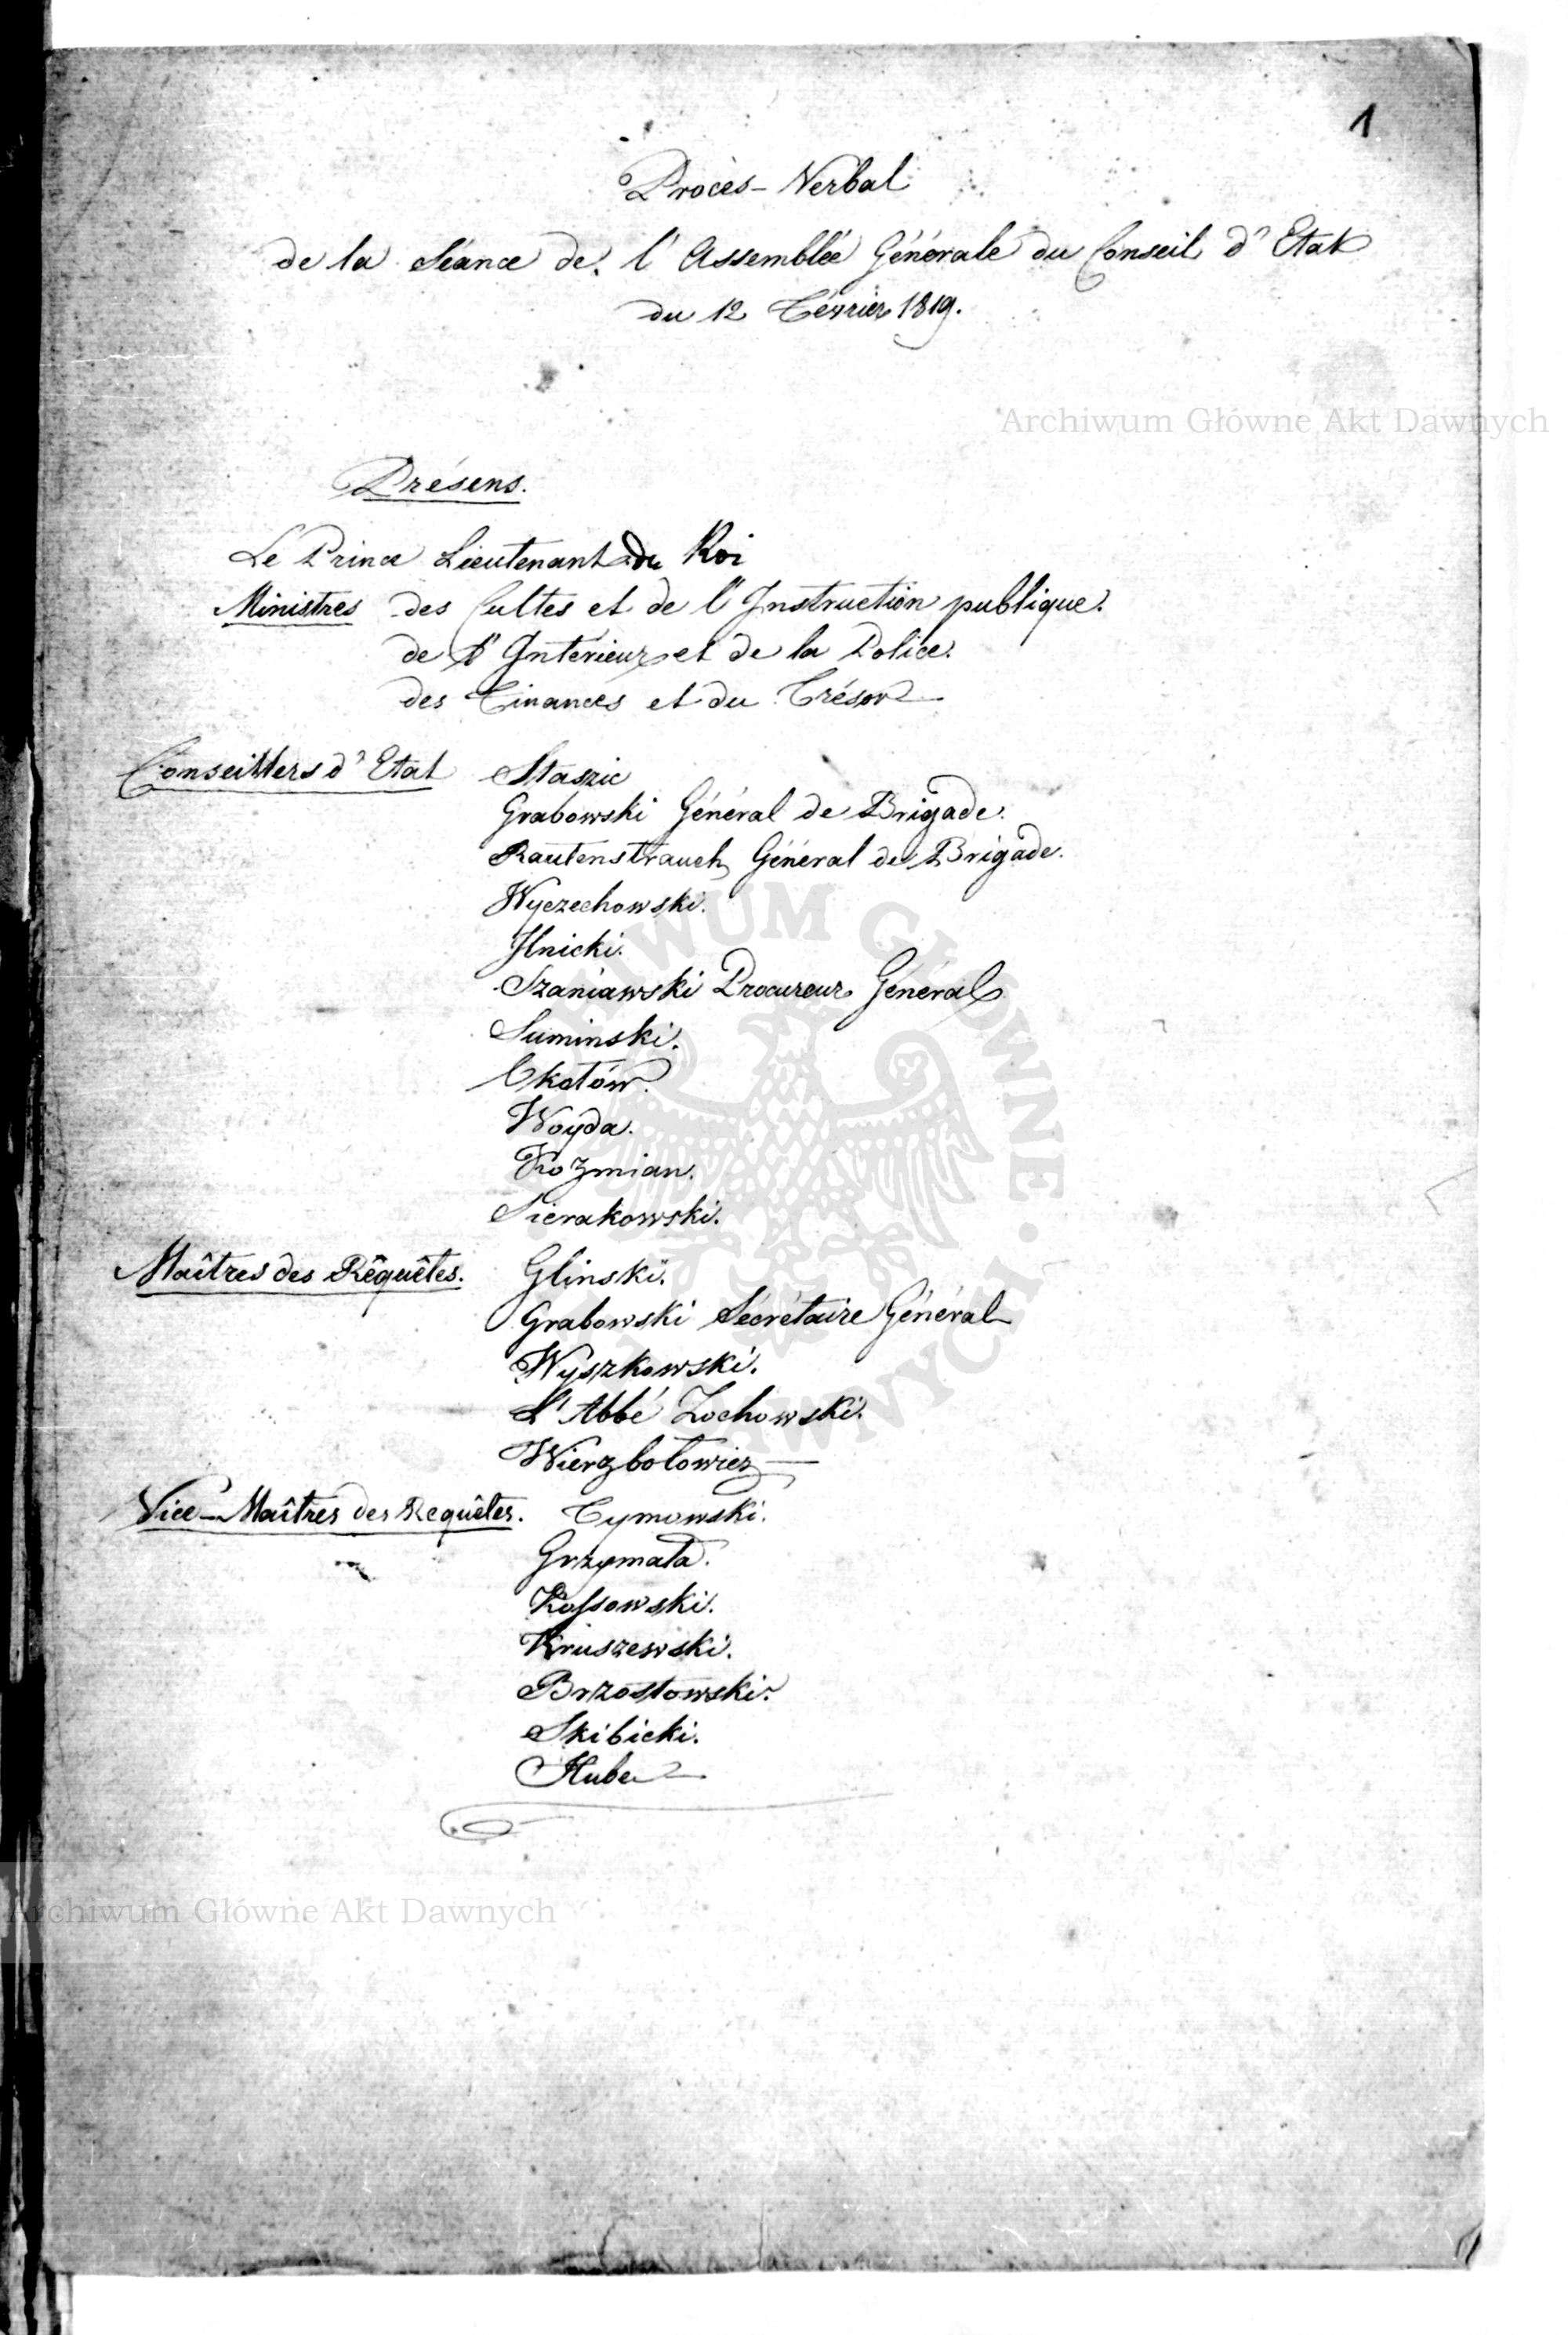 1
Procès-Verbal
de la Séance de l'Assemblée Générale du Conseil d'Etat
du 12 Février 1819.
Archiwum Główne Akt Dawnych
Présens.
Le Prince Lieutenant du Roi
Ministres des Cultes et de l'Instruction publique.
de l'Intérieur et de la Police.
des Finances et du Trésor
Conseillers d'Etat Staszic
Grabowski Général de Brigade.
Rautenstrauch Général de Brigade.
Wyczechowski.
Ilnicki.
Szaniawski Procureur Général
Suminski.
Okołów.
Woyda.
Kozmian.
Sierakowski.
Maîtres des Rêquêtes. Glinski.
Grabowski Sécrétaire Général
Wyszkowski.
L'Abbé Zochowski.
Wierzbołowicz
Vice-Maîtres des Requêtes. Tymowski.
Grzymała.
Kossowski.
Kruszewski.
Brzostowski.
Skibicki.
Hube
Archiwum Główne Akt Dawnych